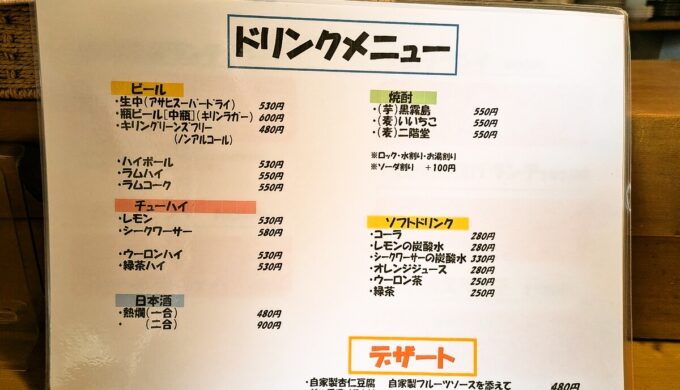 ドリンクメニュー
ビール
・生中(アサヒスーパードライ) 530円
・瓶ビール[中瓶](キリンラガー) 600円
・キリングリーンズフリー 480円
(ノンアルコール)
・ハイボール 530円
・ラムハイ 550円
・ラムコーク 550円
チューハイ
・レモン 530円
・シークワーサー 580円
・ウーロンハイ 530円
・緑茶ハイ 530円
日本酒
・熱燗(一合) 480円
・ (二合) 900円
焼酎
・(芋)黒霧島 550円
・(麦)いいちこ 550円
・(麦)二階堂 550円
※ロック・水割り・お湯割り
※ソーダ割り +100円
ソフトドリンク
・コーラ 280円
・レモンの炭酸水 280円
・シークワーサーの炭酸水 330円
・オレンジジュース 280円
・ウーロン茶 250円
・緑茶 250円
デザート
・自家製杏仁豆腐 自家製フルーツソースを添えて 480円